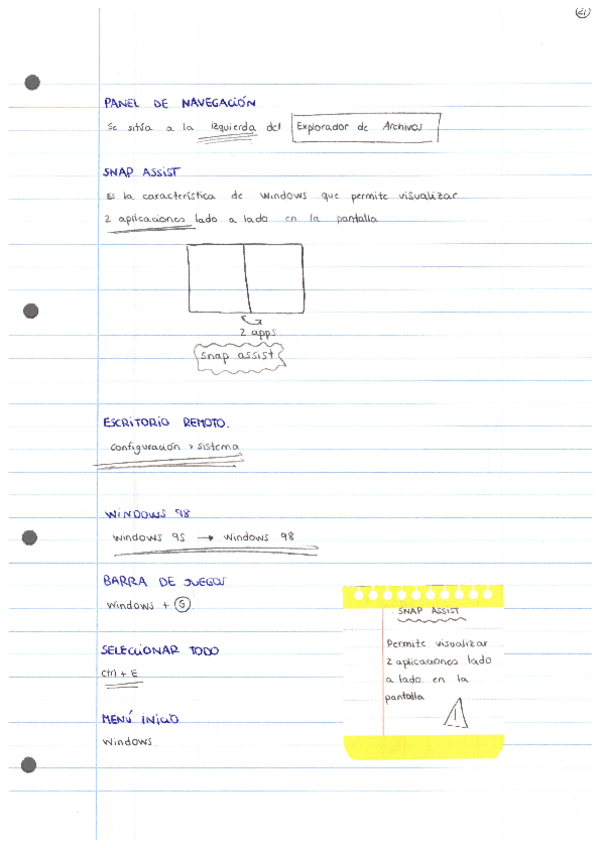 PANEL DE NAVEGACIÓN
Se sitúa a la izquierda del Explorador de Archivos
SNAP ASSIST
Es la característica de Windows que permite visualizar
2 aplicaciones lado a lado en la pantalla
2 apps
snap assist
ESCRITORIO REMOTO.
configuración > sistema
WINDOWS 98
Windows 95 → Windows 98
BARRA DE JUEGOS
Windows + G
SELECCIONAR TODO
Ctrl + E
MENÚ INICIO
Windows.
SNAP ASSIST
Permite visualizar
2 aplicaciones lado
a lado en la
pantalla
!